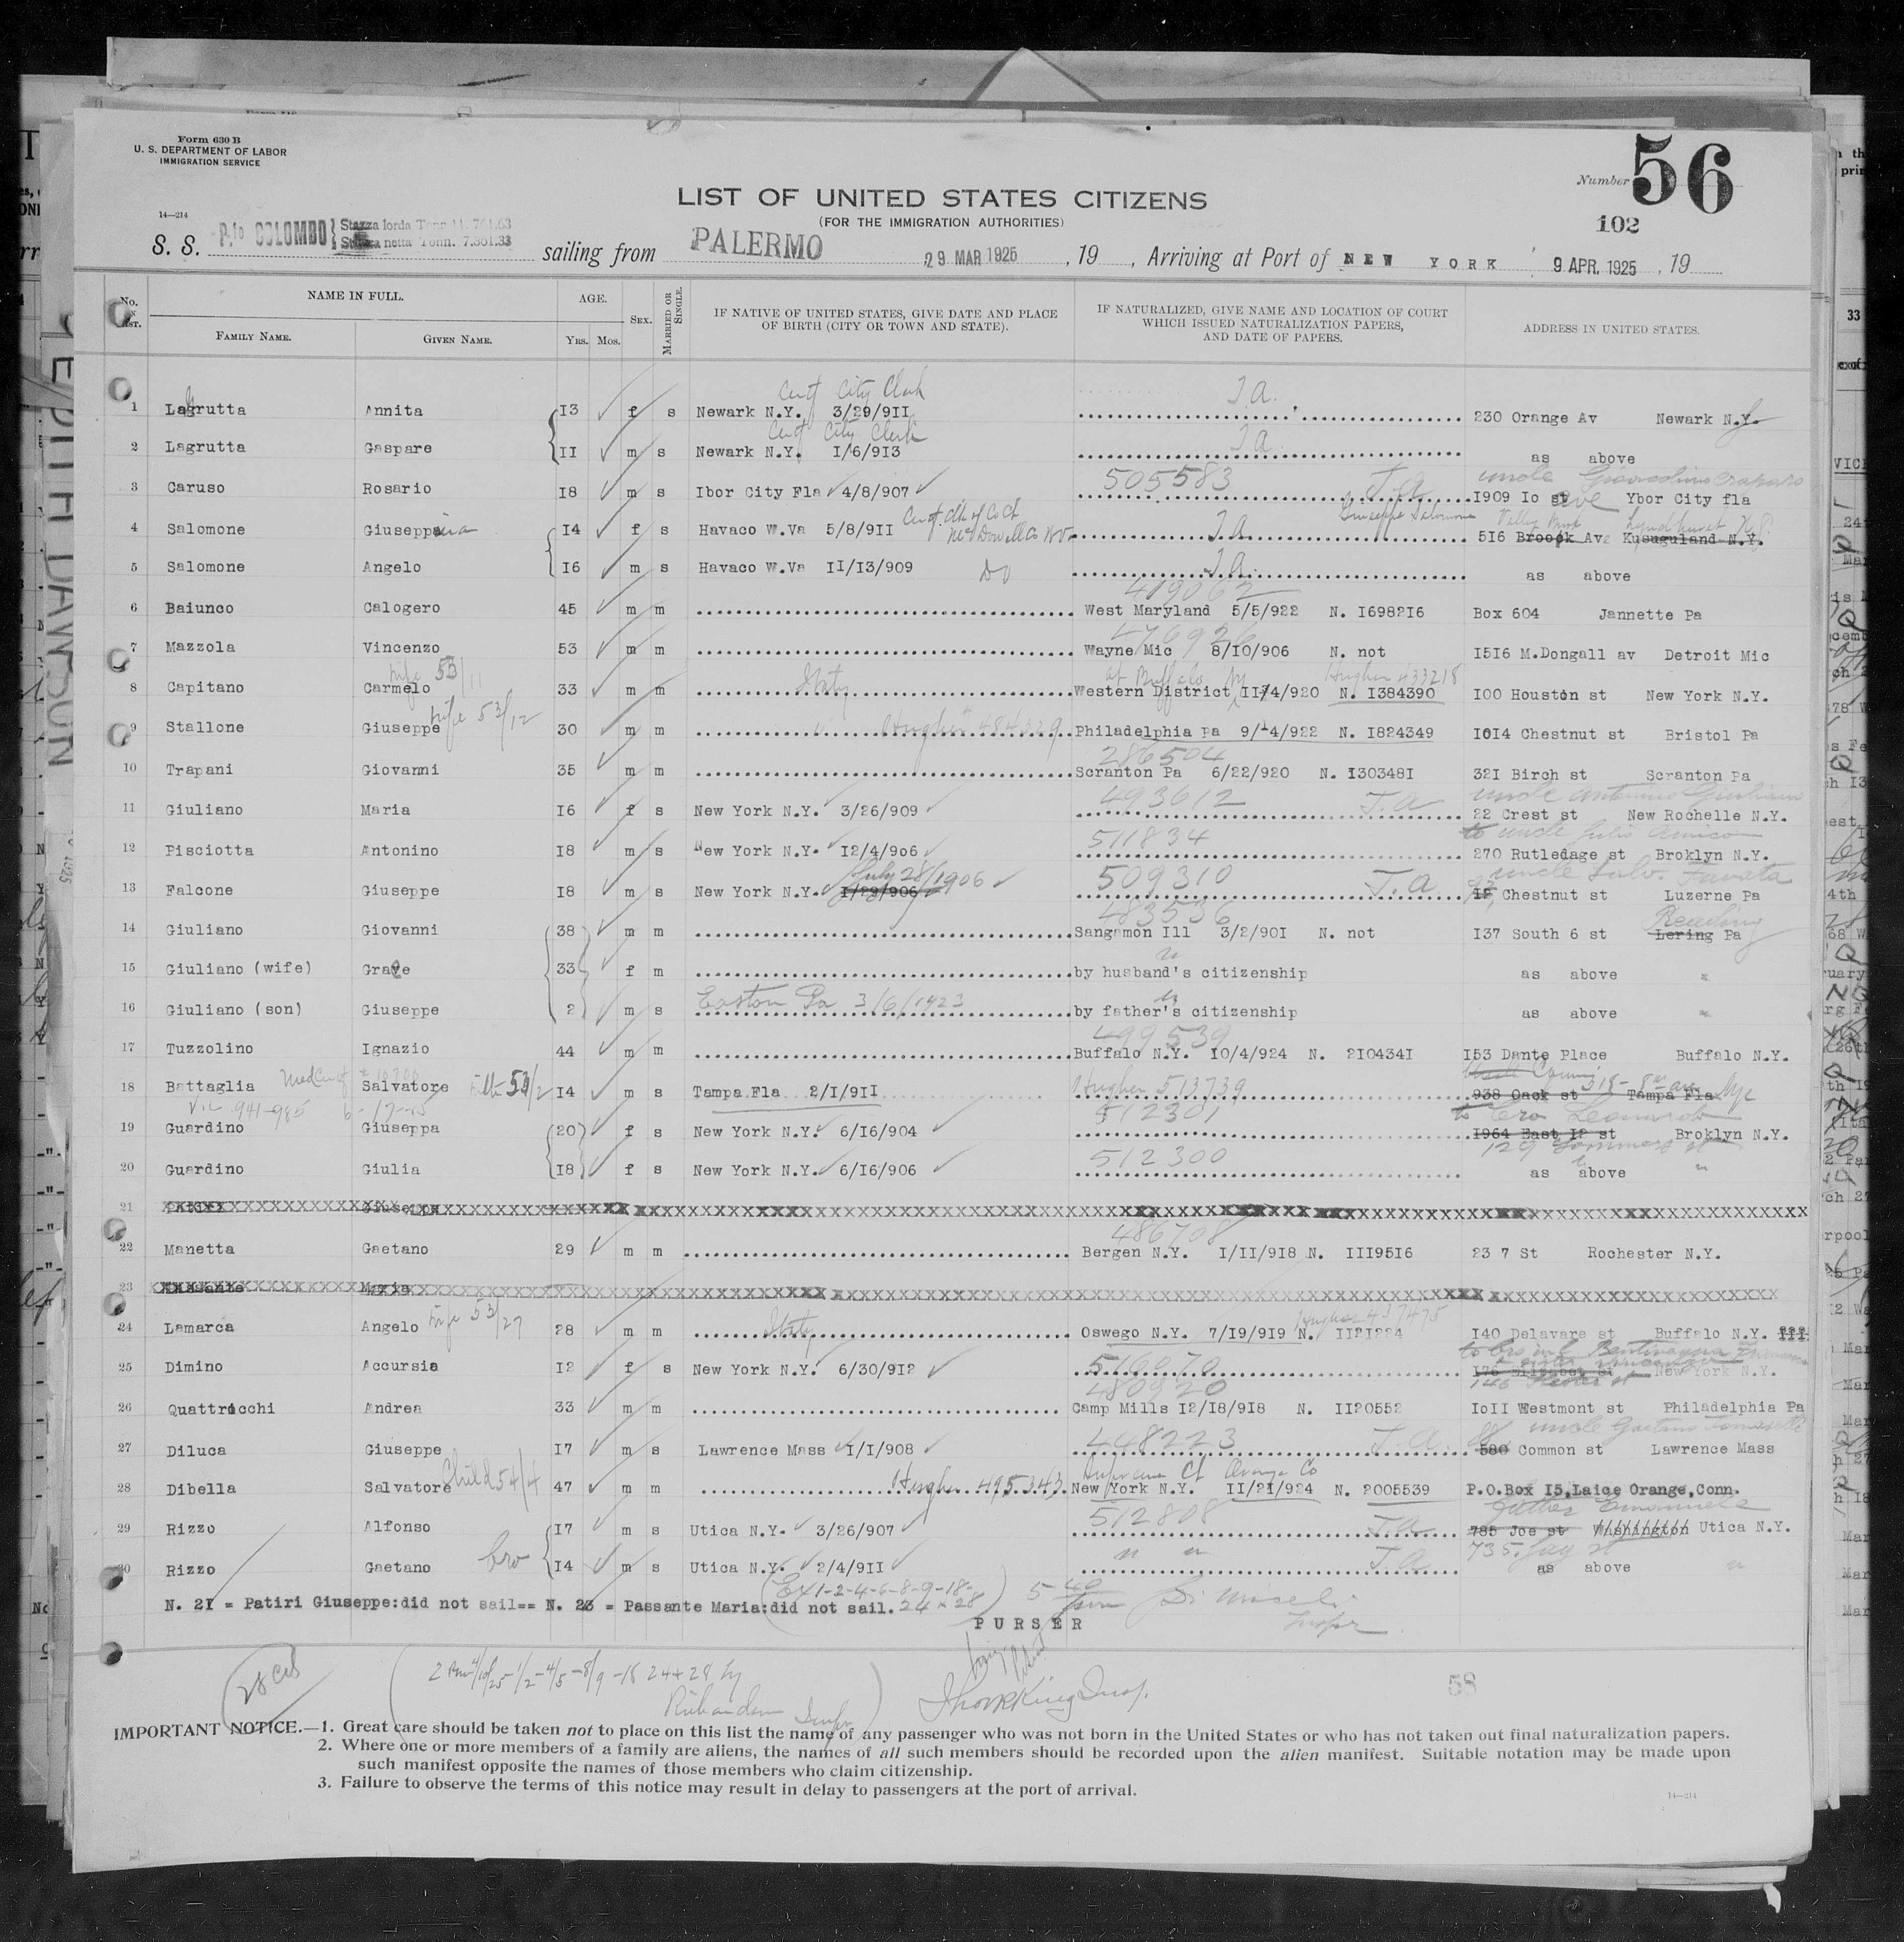 Form 630 B
U. S. DEPARTMENT OF LABOR
IMMIGRATION SERVICE
Number 56
102
LIST OF UNITED STATES CITIZENS
(FOR THE IMMIGRATION AUTHORITIES)
14—214
S. S. P.fo COLOMBO { Stazza lorda Tonn 11.761.63
Stazza netta Tonn. 7.361.33
sailing from PALERMO 29 MAR 1925, 19 , Arriving at Port of NEW YORK 9 APR. 1925, 19
No. on List. NAME IN FULL. AGE. SEX. MARRIED OR SINGLE. IF NATIVE OF UNITED STATES, GIVE DATE AND PLACE OF BIRTH (CITY OR TOWN AND STATE). IF NATURALIZED, GIVE NAME AND LOCATION OF COURT WHICH ISSUED NATURALIZATION PAPERS, AND DATE OF PAPERS. ADDRESS IN UNITED STATES.
FAMILY NAME. GIVEN NAME. YRS. MOS.
Cert City Clerk
1 Lagrutta Annita I3 f s Newark N.Y. 3/29/9II 230 Orange Av Newark N.Y.
Cert City Clerk
2 Lagrutta Gaspare II m s Newark N.Y. I/6/9I3 as above
505583 T.A. uncle
3 Caruso Rosario I8 m s Ibor City Fla 4/8/907 I909 Io st ave Ybor City fla
Giuseppe Salomone Valley Brook Lyndhurst N.J.
4 Salomone Giuseppina I4 f s Havaco W.Va 5/8/9II Cert. Clk of Co Ct McDowell Co W.Va 5I6 Broopk Ave Kusuguland N.Y.
5 Salomone Angelo I6 m s Havaco W.Va II/I3/909 Do as above
419062
6 Baiunco Calogero 45 m m West Maryland 5/5/922 N. I6982I6 Box 604 Jannette Pa
476926
7 Mazzola Vincenzo 53 m m Wayne Mic 8/I0/906 N. not I5I6 M.Dongall av Detroit Mic
wife 53/11 Italy at Buffalo NY Hughes 433218
8 Capitano Carmelo 33 m m Western District II/4/920 N. I384390 I00 Houston st New York N.Y.
wife 53/12 Hughes 484329
9 Stallone Giuseppe 30 m m Philadelphia Pa 9/14/922 N. I824349 I0I4 Chestnut st Bristol Pa
286504
10 Trapani Giovanni 35 m m Scranton Pa 6/22/920 N. I30348I 32I Birch st Scranton Pa
493612 T.A uncle Antonino Giuliano
11 Giuliano Maria I6 f s New York N.Y. 3/26/909 22 Crest st New Rochelle N.Y.
511834 to uncle Julio Amico
12 Pisciotta Antonino I8 m s New York N.Y. I2/4/906 270 Rutledage st Broklyn N.Y.
July 28/1906 509310 T.A. uncle Salv.
13 Falcone Giuseppe I8 m s New York N.Y. I/29/906 Chestnut st Luzerne Pa
483536 Reading
14 Giuliano Giovanni 38 m m Sangamon Ill 3/2/90I N. not I37 South 6 st Lering Pa
15 Giuliano (wife) Grace 33 f m by husband's citizenship as above "
16 Giuliano (son) Giuseppe 2 m s Easton Pa 3/6/1923 by father's citizenship as above "
499539
17 Tuzzolino Ignazio 44 m m Buffalo N.Y. I0/4/924 N. 2I0434I I53 Dante Place Buffalo N.Y.
Hughes 513739 318 - 8th ave Nyc
18 Battaglia Salvatore 53/2 I4 m s Tampa Fla 2/I/9II 938 Oack st Tampa Fla
941-985 6-17-
512301 to bro Leonardo
19 Guardino Giuseppa 20 f s New York N.Y. 6/I6/904 I964 East I2 st Broklyn N.Y.
512300 129 st
20 Guardino Giulia I8 f s New York N.Y. 6/I6/906 as above "
21 Patiri Giuseppe
486708
22 Manetta Gaetano 29 m m Bergen N.Y. I/II/9I8 N. III95I6 23 7 St Rochester N.Y.
23 Passante Maria
wife 53/27 Italy Hughes 437475
24 Lamarca Angelo 28 m m Oswego N.Y. 7/I9/9I9 N. II2I224 I40 Delavare st Buffalo N.Y.
516070
25 Dimino Accursia I2 f s New York N.Y. 6/30/9I2 I76 Elizabet st New York N.Y.
480920 146
26 Quattrocchi Andrea 33 m m Camp Mills I2/I8/9I8 N. II20552 IoII Westmont st Philadelphia Pa
448223 T.A. uncle Gaetano
27 Diluca Giuseppe I7 m s Lawrence Mass I/I/908 580 Common st Lawrence Mass
Child 54/4 Hughes 495343 Supreme Ct Orange Co
28 Dibella Salvatore 47 m m New York N.Y. II/2I/924 N. 2005539 P.O.Box I5,Laice Orange,Conn.
512808 T.A. father Emanuele
29 Rizzo Alfonso I7 m s Utica N.Y. 3/26/907 785 Joe st Washington Utica N.Y.
735 Jay st
30 Rizzo Gaetano bro I4 m s Utica N.Y. 2/4/9II " " T.A. as above "
(Ex 1-2-4-6-8-9-18-24 x 28)
N. 2I = Patiri Giuseppe:did not sail== N. 23 = Passante Maria:did not sail.
PURSER
28 cits
Inspr
58
IMPORTANT NOTICE.—1. Great care should be taken not to place on this list the name of any passenger who was not born in the United States or who has not taken out final naturalization papers.
2. Where one or more members of a family are aliens, the names of all such members should be recorded upon the alien manifest. Suitable notation may be made upon
such manifest opposite the names of those members who claim citizenship.
3. Failure to observe the terms of this notice may result in delay to passengers at the port of arrival.
14—214